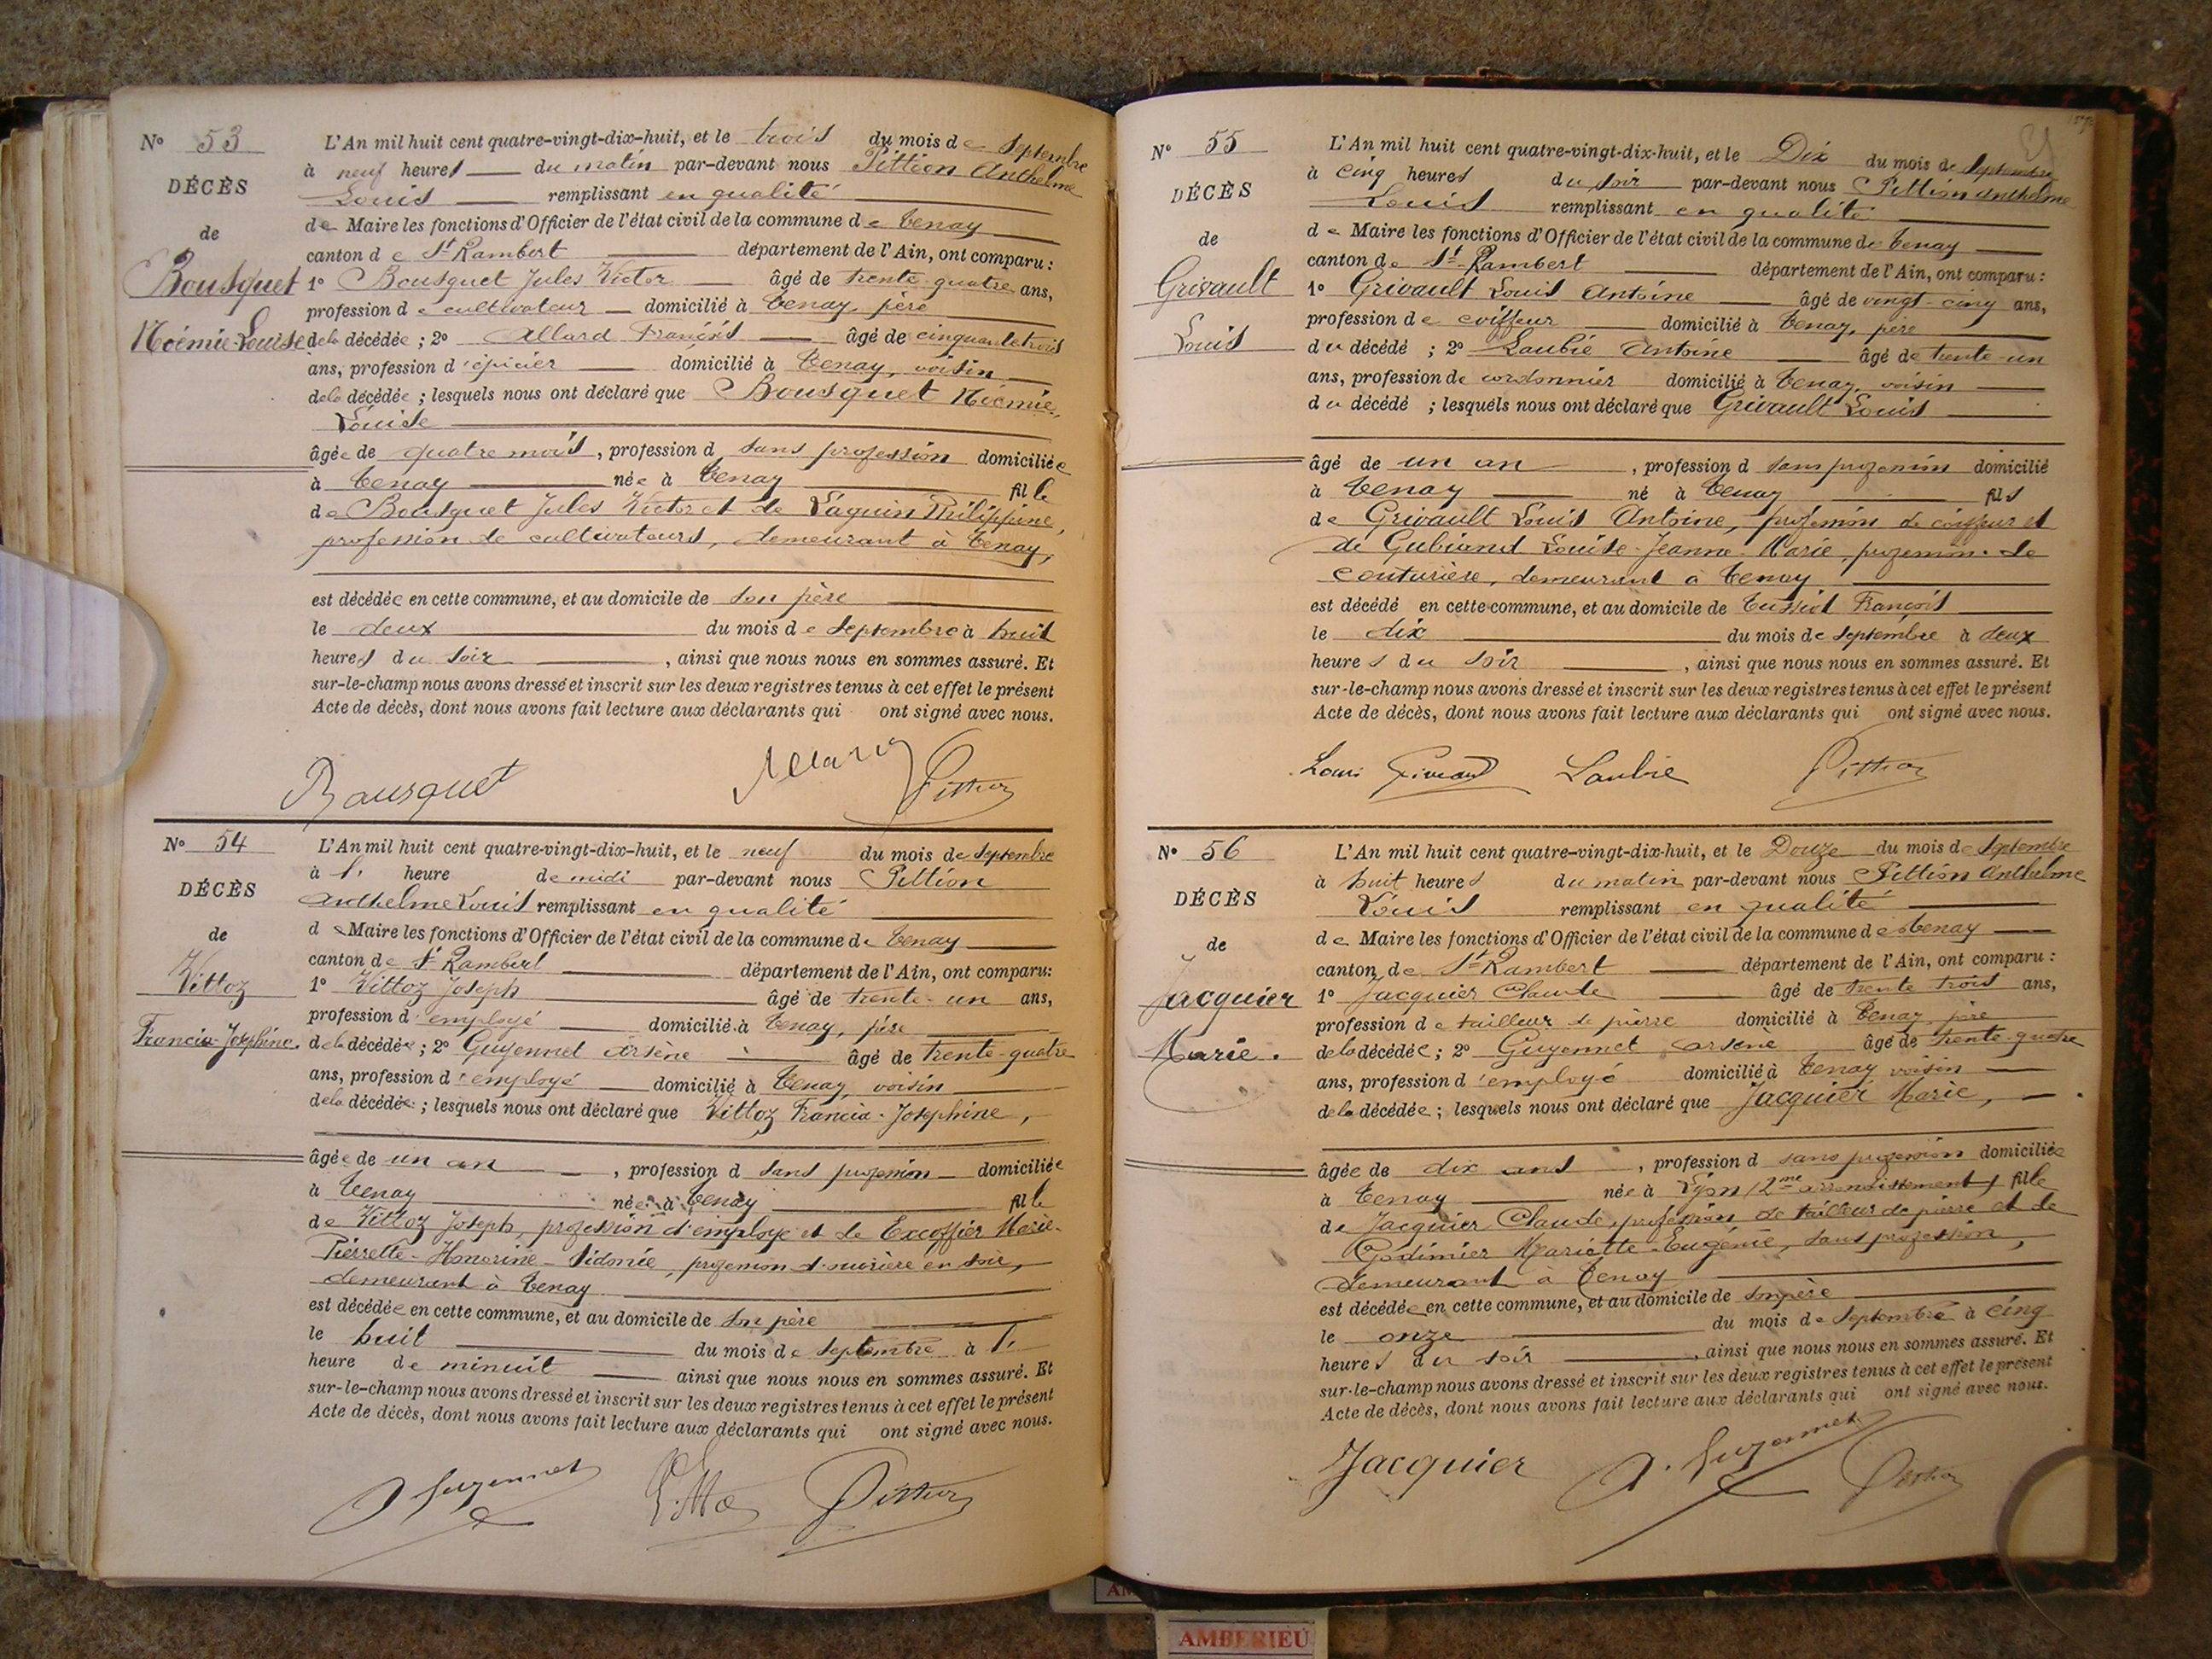 N° 53
DÉCÈS
de
Bousquet
Noémie-Louise
L'An mil huit cent quatre-vingt-dix-huit, et le trois du mois de Septembre
à neuf heures du matin par-devant nous Pittion Anthelme
Louis remplissant en qualité
de Maire les fonctions d'Officier de l'état civil de la commune de Tenay
canton de St Rambert département de l'Ain, ont comparu :
1° Bousquet Jules Victor âgé de trente-quatre ans,
profession de cultivateur domicilié à Tenay, père
de la décédée ; 2° Allard François âgé de cinquante trois
ans, profession d'épicier domicilié à Tenay, voisin
de la décédée ; lesquels nous ont déclaré que Bousquet Noémie,
Louise
âgée de quatre mois, profession d sans profession domiciliée
à Tenay née à Tenay fille
de Bousquet Jules Victor et de Laguin Philippine,
profession de cultivateurs, demeurant à Tenay,
est décédée en cette commune, et au domicile de son père
le deux du mois de Septembre à huit
heures du soir, ainsi que nous nous en sommes assuré. Et
sur-le-champ nous avons dressé et inscrit sur les deux registres tenus à cet effet le présent
Acte de décès, dont nous avons fait lecture aux déclarants qui ont signé avec nous.
Bousquet Pittion
N° 54
DÉCÈS
de
Vittoz
Francia-Joséphine.
L'An mil huit cent quatre-vingt-dix-huit, et le neuf du mois de Septembre
à 1. heure de midi par-devant nous Pittion
Anthelme Louis remplissant en qualité
de Maire les fonctions d'Officier de l'état civil de la commune de Tenay
canton de St Rambert département de l'Ain, ont comparu :
1° Vittoz Joseph âgé de trente-un ans,
profession d'employé domicilié à Tenay, père
de la décédée ; 2° Guyennet Arsène âgé de trente-quatre
ans, profession d'employé domicilié à Tenay, voisin
de la décédée ; lesquels nous ont déclaré que Vittoz Francia-Joséphine,
âgée de un an, profession d sans profession domiciliée
à Tenay née à Tenay fille
de Vittoz Joseph, profession d'employé et de Excoffier Marie-
Pierrette-Honorine-Sidonie, profession d'ouvrière en soie,
demeurant à Tenay
est décédée en cette commune, et au domicile de son père
le huit du mois de Septembre à 1.
heure de minuit ainsi que nous nous en sommes assuré. Et
sur-le-champ nous avons dressé et inscrit sur les deux registres tenus à cet effet le présent
Acte de décès, dont nous avons fait lecture aux déclarants qui ont signé avec nous.
A. Guyennet Vittoz Pittion
N° 55
DÉCÈS
de
Grivault
Louis
L'An mil huit cent quatre-vingt-dix-huit, et le Dix du mois de Septembre
à cinq heures du soir par-devant nous Pittion Anthelme
Louis remplissant en qualité
de Maire les fonctions d'Officier de l'état civil de la commune de Tenay
canton de St-Rambert département de l'Ain, ont comparu :
1° Grivault Louis Antoine âgé de vingt-cinq ans,
profession de coiffeur domicilié à Tenay, père
du décédé ; 2° Laubie Antoine âgé de trente-un
ans, profession de cordonnier domicilié à Tenay, voisin
du décédé ; lesquels nous ont déclaré que Grivault Louis
âgé de un an, profession d sans profession domicilié
à Tenay né à Tenay fils
de Grivault Louis Antoine, profession de coiffeur et
de Gubiand Louise-Jeanne-Marie, profession de
couturière, demeurant à Tenay
est décédé en cette commune, et au domicile de François
le dix du mois de Septembre à deux
heures du soir, ainsi que nous nous en sommes assuré. Et
sur-le-champ nous avons dressé et inscrit sur les deux registres tenus à cet effet le présent
Acte de décès, dont nous avons fait lecture aux déclarants qui ont signé avec nous.
Louis Laubie Pittion
N° 56
DÉCÈS
de
Jacquier
Marie.
L'An mil huit cent quatre-vingt-dix-huit, et le Douze du mois de Septembre
à huit heures du matin par-devant nous Pittion Anthelme
Louis remplissant en qualité
de Maire les fonctions d'Officier de l'état civil de la commune de Tenay
canton de St-Rambert département de l'Ain, ont comparu :
1° Jacquier Claude âgé de trente trois ans,
profession de tailleur de pierre domicilié à Tenay, père
de la décédée ; 2° Guyennet Arsène âgé de trente-quatre
ans, profession d'employé domicilié à Tenay voisin
de la décédée ; lesquels nous ont déclaré que Jacquier Marie,
âgée de dix ans, profession d sans profession domiciliée
à Tenay née à Lyon (2me arrondissement) fille
de Jacquier Claude, profession de tailleur de pierre et de
Godimier Mariette-Eugénie, sans profession,
demeurant à Tenay
est décédée en cette commune, et au domicile de son père
le onze du mois de Septembre à cinq
heures du soir, ainsi que nous nous en sommes assuré. Et
sur-le-champ nous avons dressé et inscrit sur les deux registres tenus à cet effet le présent
Acte de décès, dont nous avons fait lecture aux déclarants qui ont signé avec nous.
Jacquier A. Guyennet Pittion
AMBERIEU